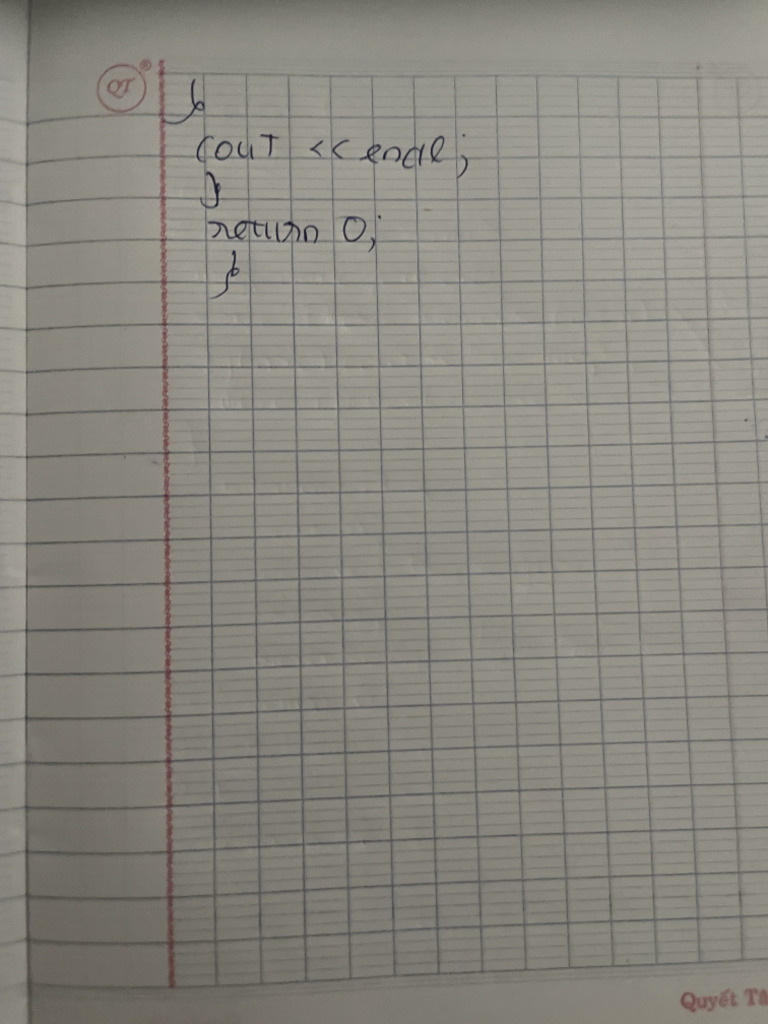 QT
}
cout << endl;
}
return 0;
}
Quyết Tâ